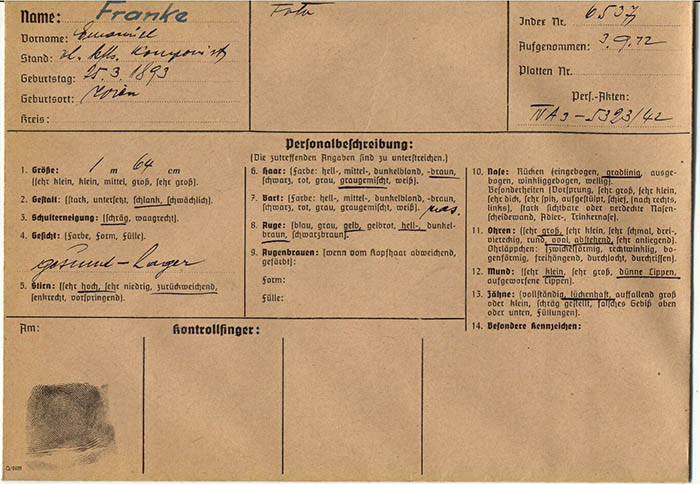 Name: Franke
Vorname: Emanuel
Stand: Komponist
Geburtstag: 25.3.1893
Geburtsort: Wien
Kreis:
Foto
Index Nr. 6537
Aufgenommen: 3.9.42
Platten Nr.
Pers.-Akten:
IV A 3 - 5393/42
Personalbeschreibung:
(Die zutreffenden Angaben sind zu unterstreichen.)
1. Größe: 1 m 64 cm
(sehr klein, klein, mittel, groß, sehr groß).
2. Gestalt: (stark, untersetzt, schlank, schwächlich).
3. Schulterneigung: (schräg, waagrecht).
4. Gesicht: (Farbe, Form, Fülle).
gesund - hager
5. Stirn: (sehr hoch, sehr niedrig, zurückweichend,
senkrecht, vorspringend).
6. Haar: (Farbe: hell-, mittel-, dunkelblond, -braun,
schwarz, rot, grau, graugemischt, weiß).
7. Bart: (Farbe: hell-, mittel-, dunkelblond, -braun,
schwarz, rot, grau, graugemischt, weiß).
8. Auge: (blau, grau, gelb, gelbrot, hell-, dunkel-
braun, schwarzbraun).
9. Augenbrauen: (wenn vom Kopfhaar abweichend,
gefärbt):
Form:
Fülle:
10. Nase: Rücken (eingebogen, gradlinig, ausge-
bogen, winkliggebogen, wellig).
Besonderheiten (Vorsprung, sehr groß, sehr klein,
sehr dick, sehr spitz, aufgestülpt, schief, (nach rechts,
links), stark sichtbare oder verdeckte Nasen-
scheidewand, Adler-, Trinkernase).
11. Ohren: (sehr groß, sehr klein, sehr schmal, drei-,
viereckig, rund, oval, abstehend, sehr anliegend).
Ohrläppchen: (zwickelförmig, rechtwinklig, bo-
genförmig, freihängend, durchlocht, durchrissen).
12. Mund: (sehr klein, sehr groß, dünne Lippen,
aufgeworfene Lippen).
13. Zähne: (vollständig, lückenhaft, auffallend groß
oder klein, schräg gestellt, falsches Gebiß oben
oder unten, Füllungen).
14. Besondere Kennzeichen:
Am:
Kontrollfinger: